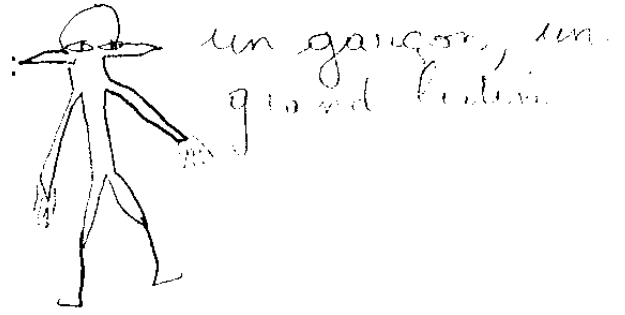 un garçon, un
grand lutin